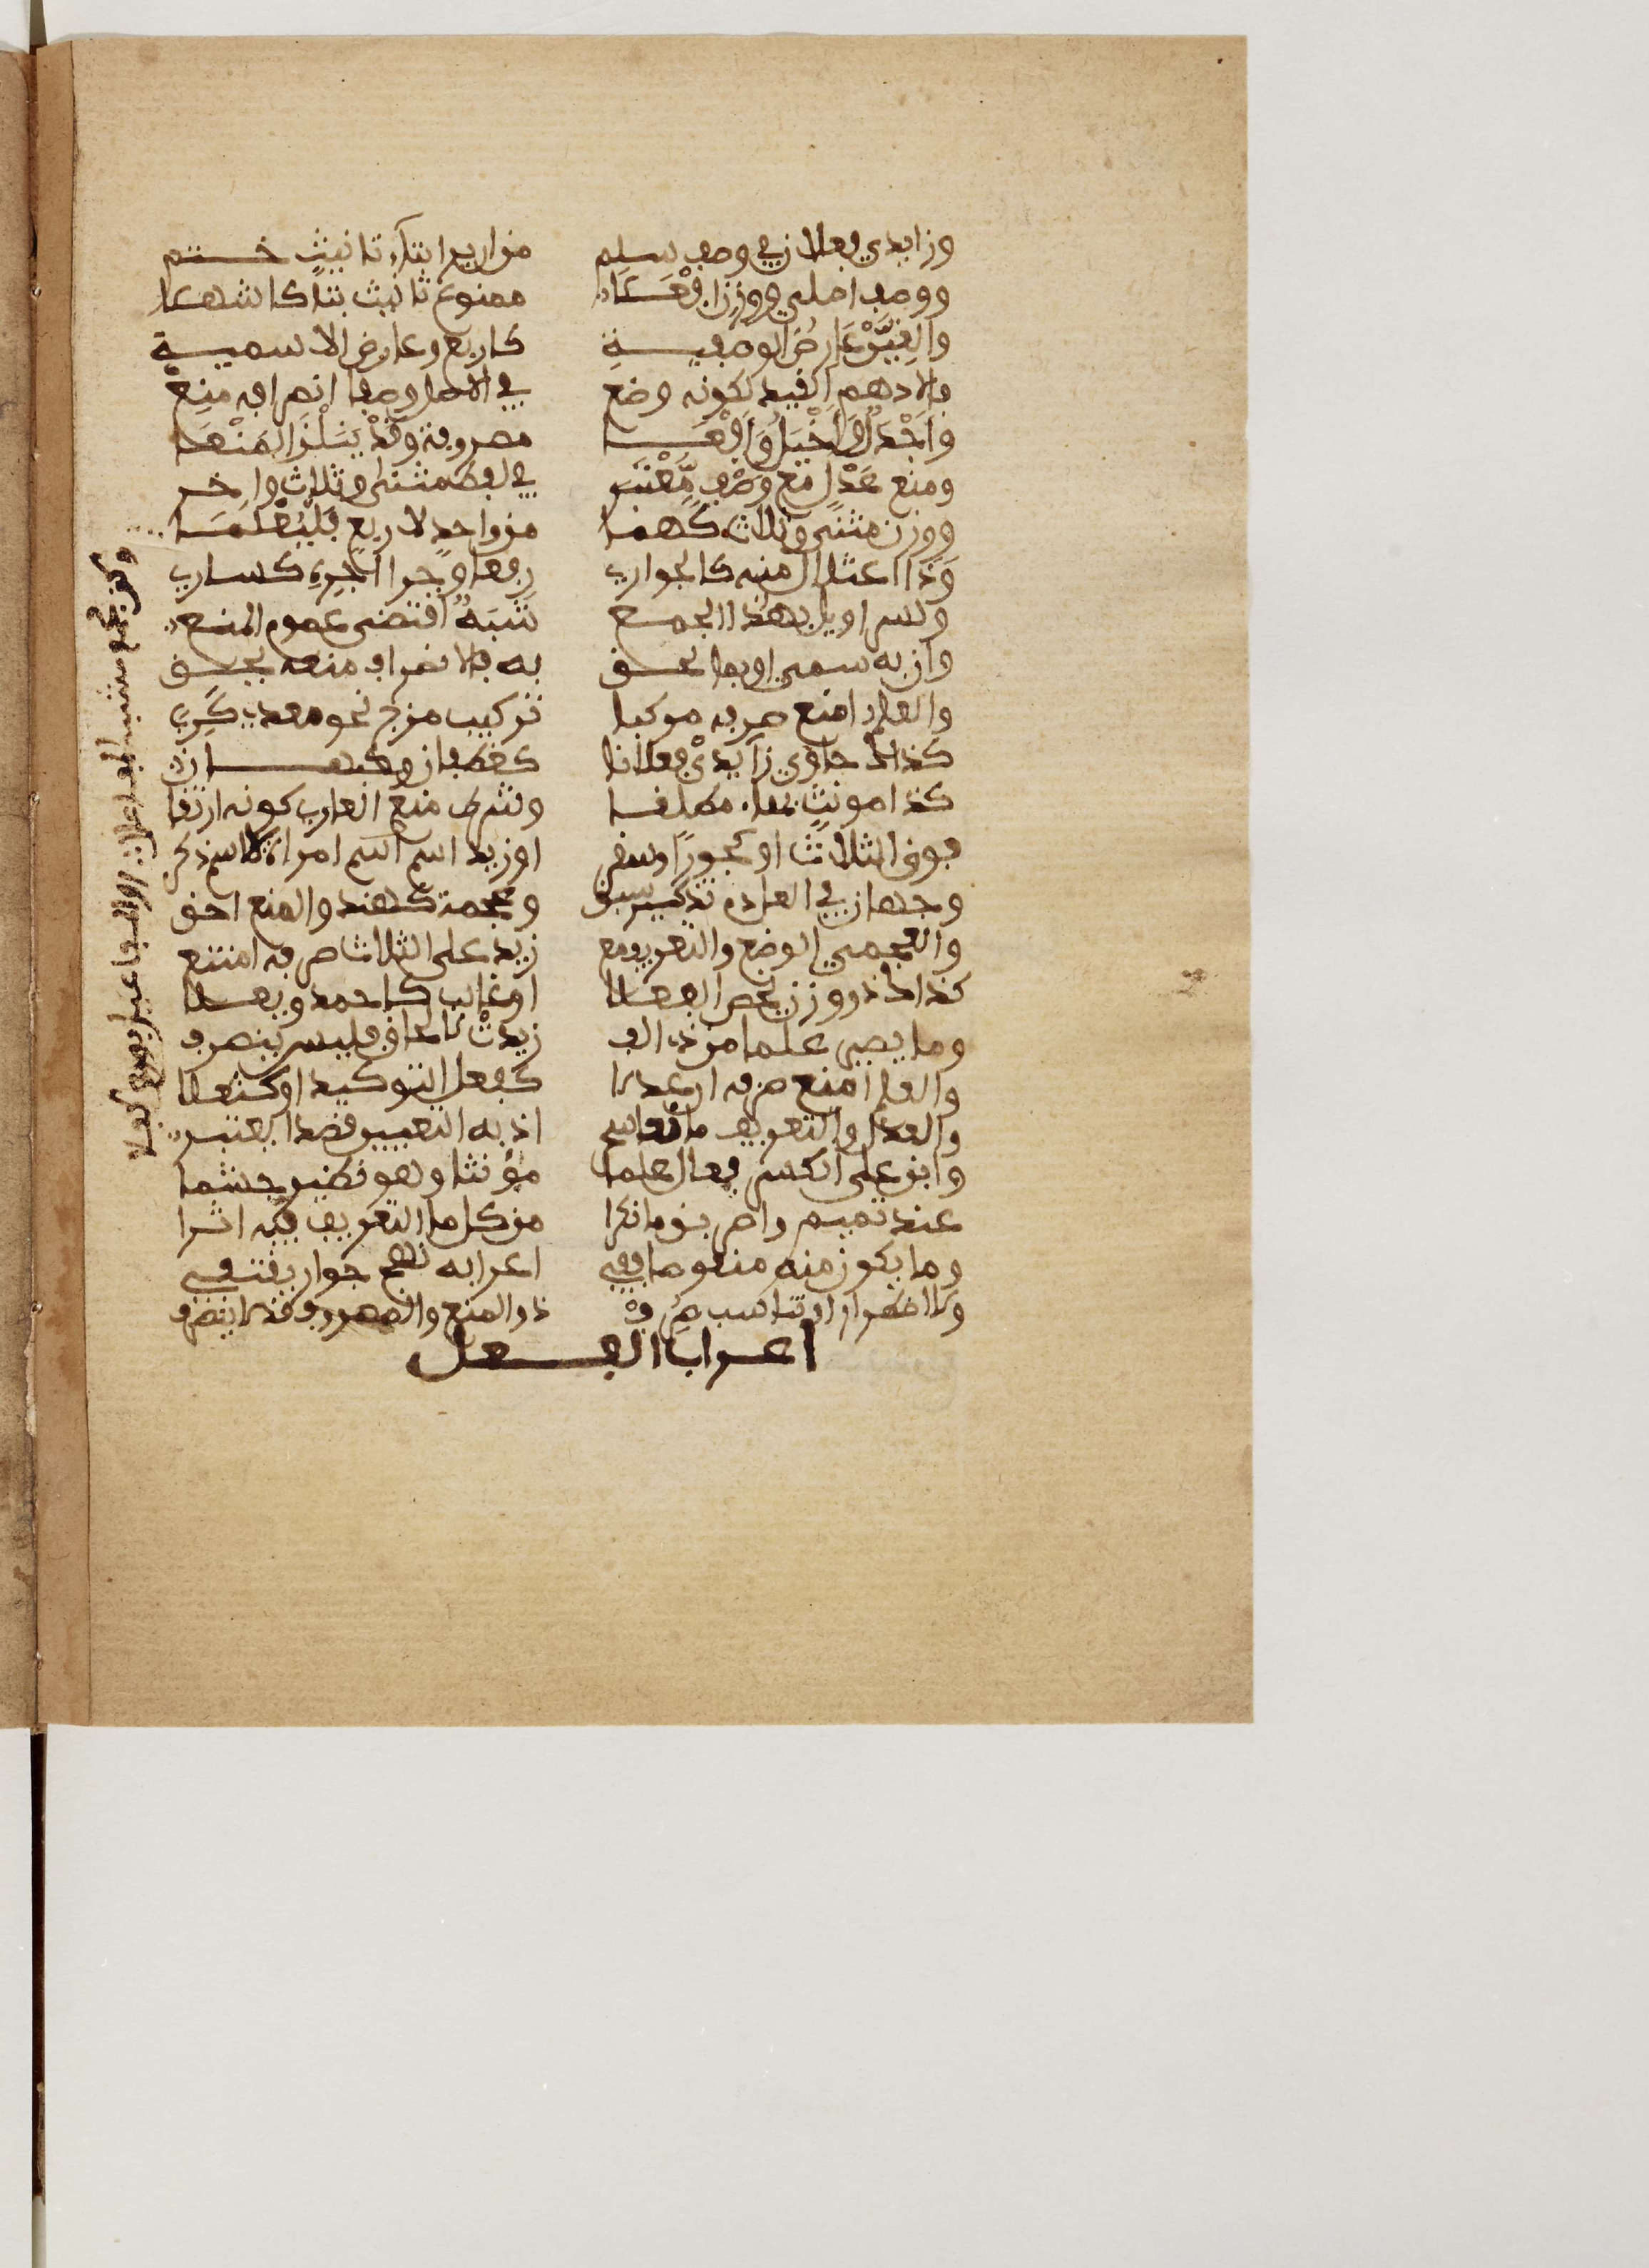 وزايدي فعلان في وصف سلم من ان يرا بتاء تانيث ختم
ووصف اصلي ووزن افعلا ممنوع تانيث بتا كاشهلا
والغين عارض الوصفية كاربع وعارض الاسمية
فالادهم القيد لكونه وضع في الاصل وصفا انصرافه منع
واجدل واخيل وافعى مصروفة وقد ينلن المنعا
ومنع عدل مع وصف معتبر في لفظ مثنى وثلاث واخر
ووزن مثنى وثلاث كهما من واحد لاربع فليعلما
وذا اعتلال منه كالجواري رفعا وجرا اجره كساري
ولسراويل بهذا الجمع شبه اقتضى عموم المنع
وان به سمي او بما لحق به فالانصراف منعه يحق
والعلم امنع صرفه مركبا تركيب مزج نحو معدي كربا
كذاك حاوي زايدي فعلانا كغطفان وكاصبهانا
كذا مونث بهاء مطلقا وشرط منع العار كونه ارتقا
فوق الثلاث او كجورا وسقر او زيد اسم امراة لا اسم ذكر
وجهان في العادم تذكيرا سبق وعجمة كهند والمنع احق
والعجمي الوضع والتعريف مع زيد على الثلاث صرفه امتنع
كذاك ذو وزن يخص الفعلا او غالب كاحمد ويعلا
وما يصير علما من ذي الف زيدت لالحاق فليس ينصرف
والعلم امنع صرفه ان عدلا كفعل التوكيد او كثعلا
والعدل والتعريف مانعا سحر اذ به التعيين قصدا يعتبر
وابن على الكسر فعال علما مؤنثا وهو نظير جشما
عند تميم واصرفن ما نكرا من كل ما التعريف فيه اثرا
وما يكون منه منقوصا ففي اعرابه نهج جوار يقتفي
ولاضطرار او تناسب صرف ذو المنع والمصروف قد لا ينصرف
اعراب الفعل
وكن لجمع مشبه مفاعلا او المفاعيل بمنع كافلا